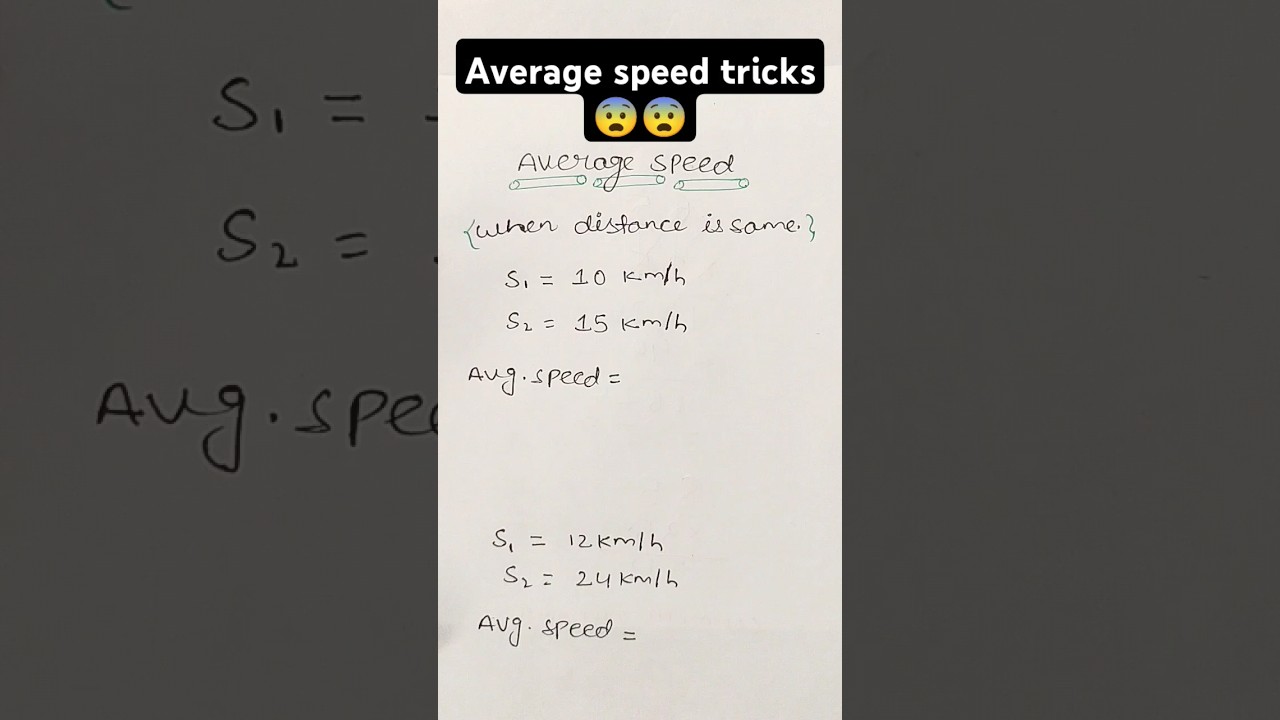 Average speed tricks
😨😨
Average speed
{when distance is same.}
S₁ = 10 km/h
S₂ = 15 km/h
Avg. speed =
S₁ = 12 km/h
S₂ = 24 km/h
Avg. speed =
S₁ =
S₂ =
Avg. spee